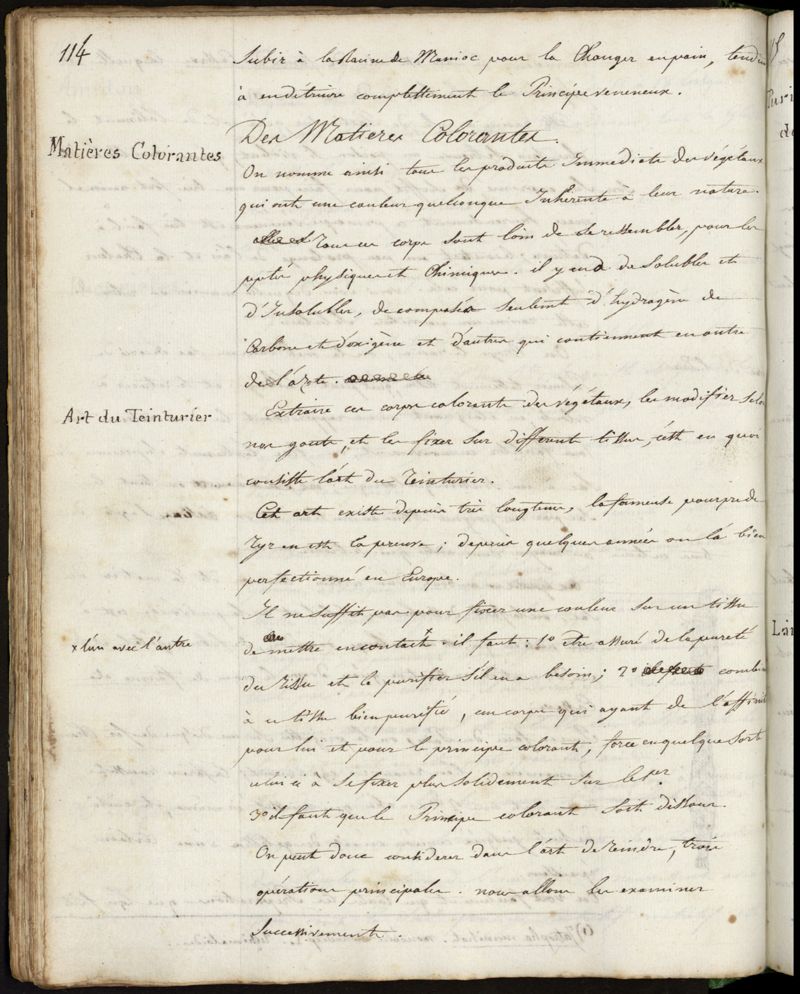 114
Subir à la Racine de Manioc pour la Changer en pain, tend
à en détruire complettement le Principe veneneux.
Matières Colorantes
Des Matieres Colorantes.
On nomme ainsi tous les produits Immediats des végétaux
qui ont une couleur quelconque Inhérente à leur nature.
Tous ces corps sont loin de se ressembler, pour les
pptés physiques et Chimiques. il y en a de Solubles et
d'Insolubles, de composés seulemt d'hydrogène de
Carbone et d'oxigène et d'autres qui contiennent en outre
de l'azote.
Art du Teinturier
Extraire ces corps colorants des végétaux, les modifier selon
nos gouts, et les fixer sur différents tissus, c'est en quoi
consiste l'art du Teinturier.
Cet art existe depuis très longtems, la fameuse pourpre de
Tyr en est la preuve; depuis quelques années on l'a bien
perfectionné en Europe.
Il ne suffit pas pour fixer une couleur sur un tissu
x l'un avec l'autre
de les mettre en contact x. il faut: 1° etre assuré de la pureté
du tissu et le purifier s'il en a besoin; 2° combiner
à ce tissu bien purifié, un corps qui ayant de l'affinité
pour lui et pour le principe colorant, force en quelque sorte
celui ci à se fixer plus solidement sur le per
3° il faut que le Principe colorant soit dissous.
On peut donc considerer dans l'art de Teindre, trois
opérations principales. nous allons les examiner
Successivement.